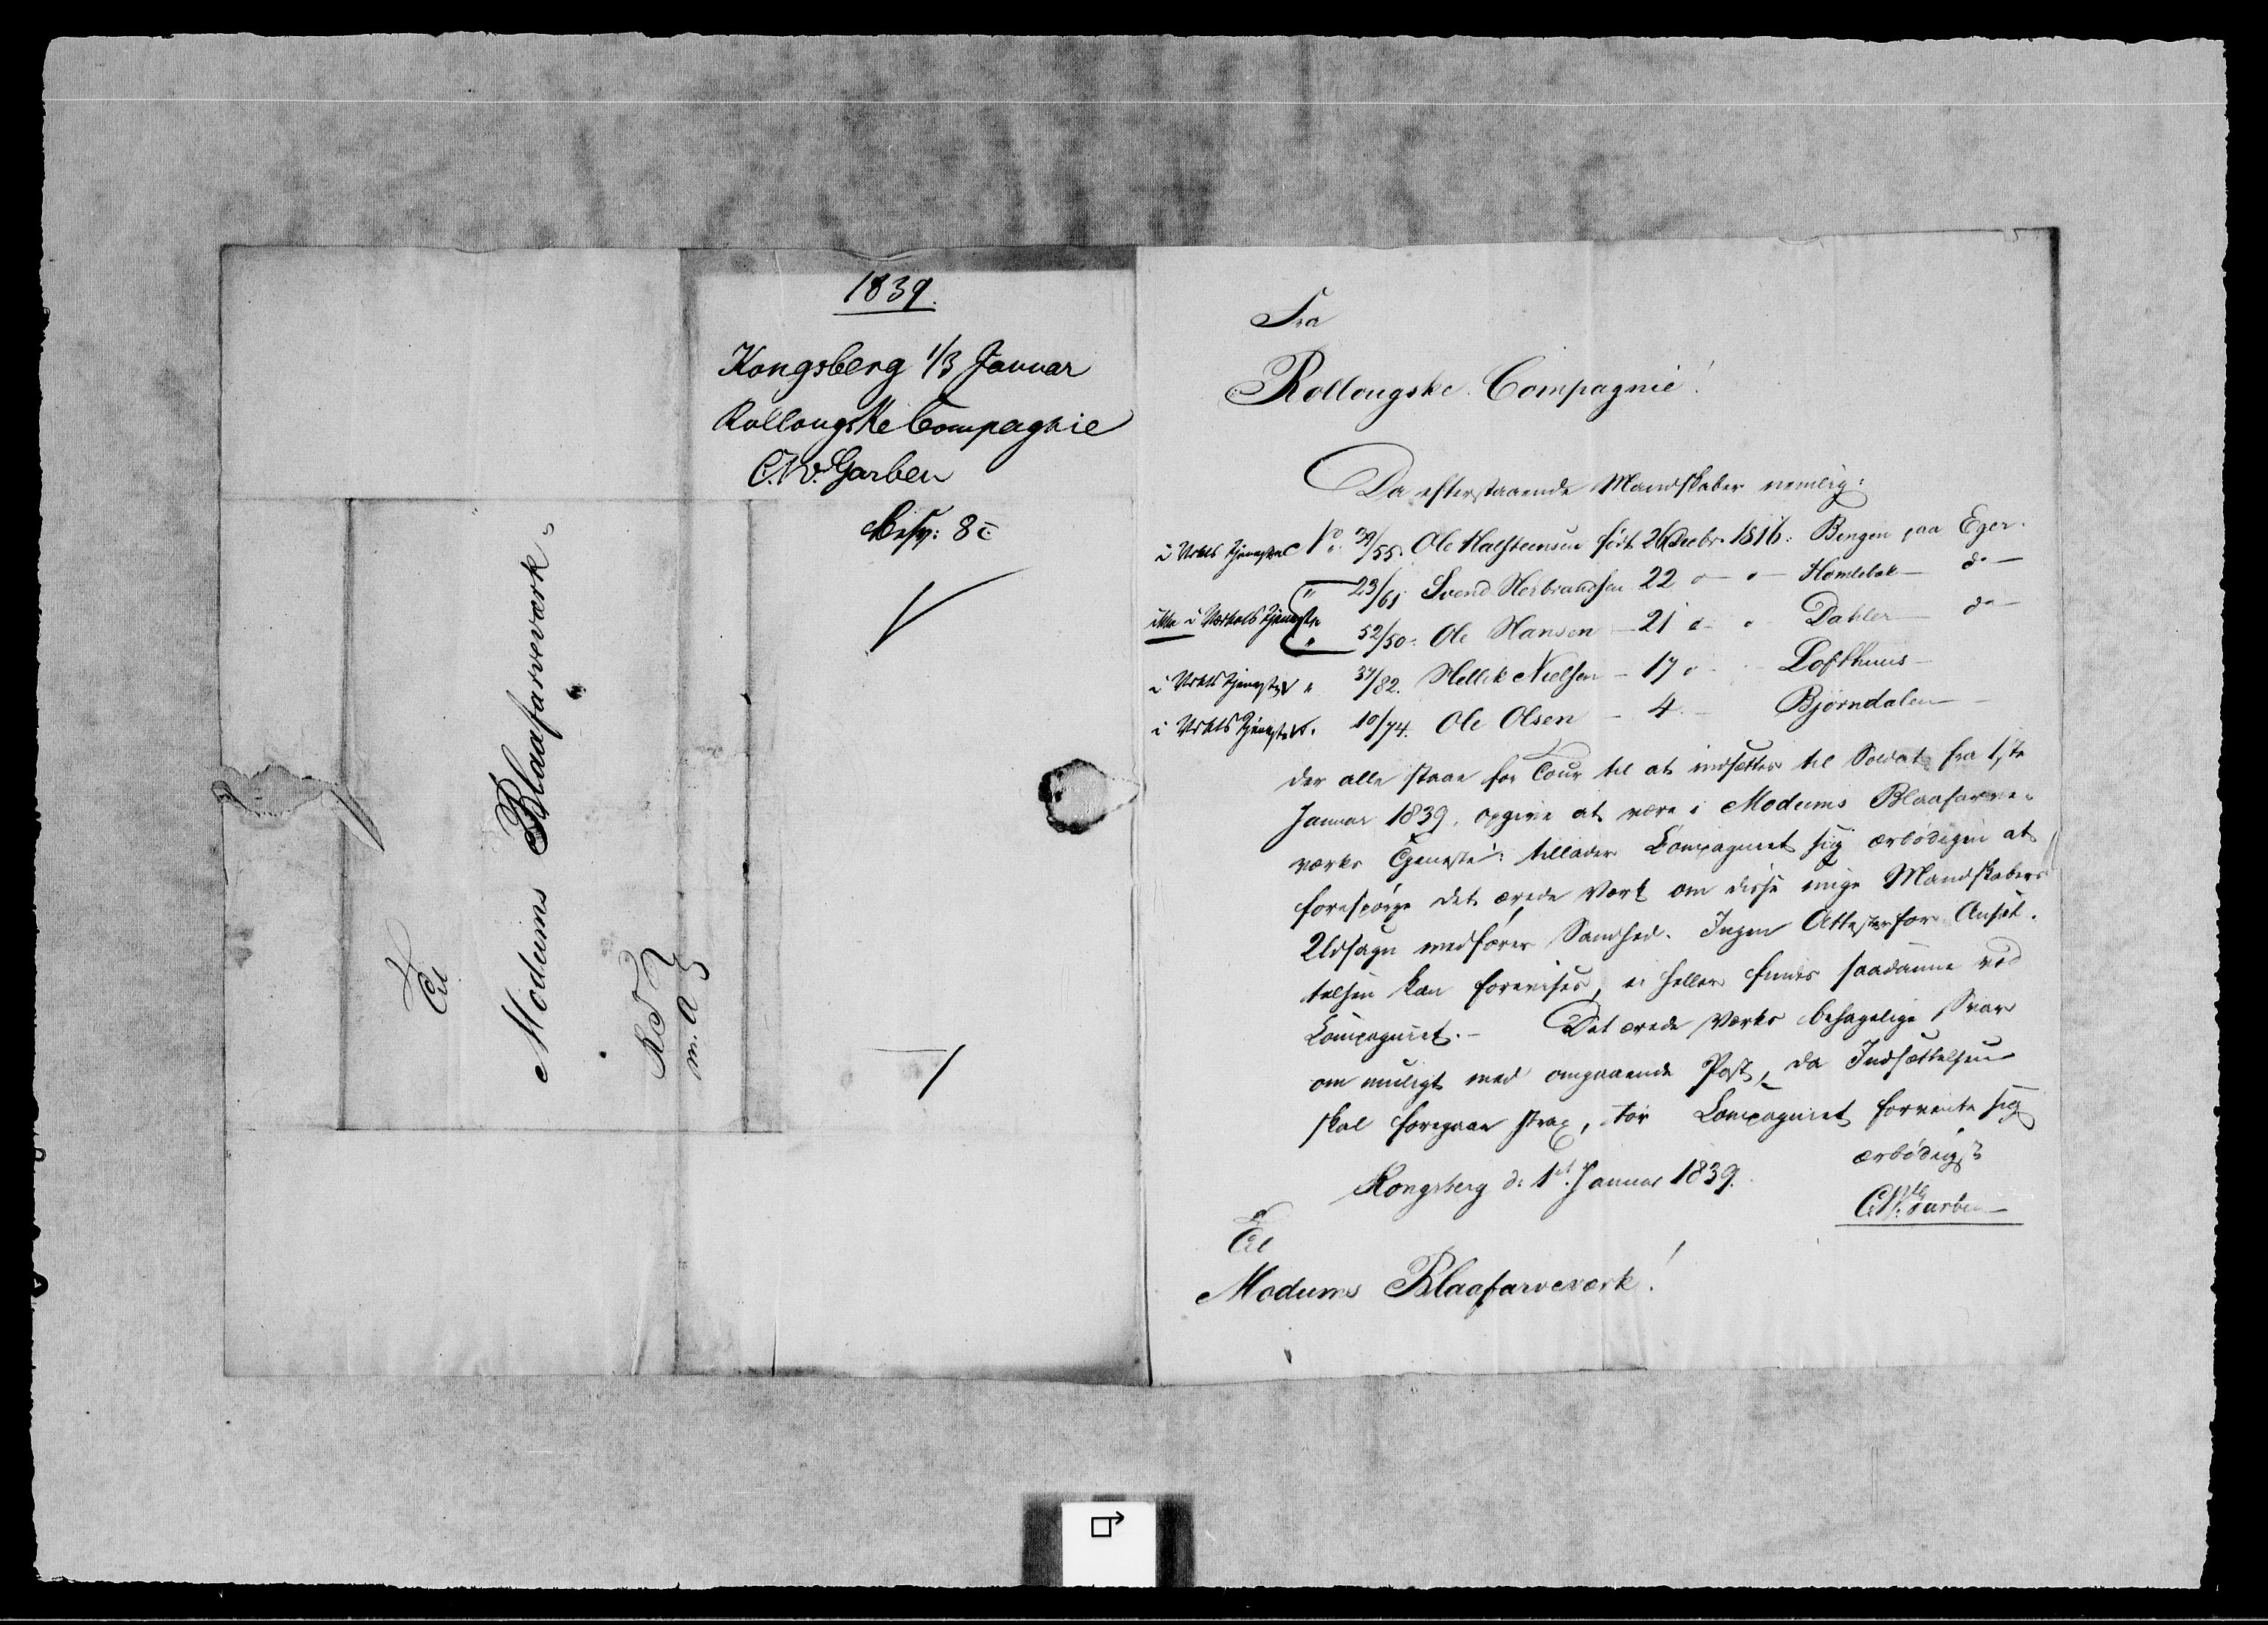 1839.
Kongsberg 1/3 Januar
Rollougske Compagnie
C. W. Garben
Besv: 8 c
Til
Modums Blaafarveværk
K T
m. a
Fra
Rollougske Compagnie!
Da efterstaaende Mandskaber nemlig:
i Vrkts Tjeneste No. 39/55. Ole Halsteensen født 26 Decbr. 1816. Bingen paa Eger.
" 23/61 Svend Herbrandsen 22 " " Homlebæk — do —
ikke i Værkets Tjeneste " 52/50. Ole Hansen — 21 " " Dahler — do —
i Vrkts Tjeneste " 37/82. Hellik Nielsen — 17 " Lofthuus —
i Vrkts Tjeneste " 10/74. Ole Olsen — 4 — Bjørndalen —
der alle staae for Tour til at indsættes til Soldat fra 1ste
Januar 1839, opgive at være i Modums Blaafarve-
værks Tjeneste; tillader Compagniet sig ærbødigen at
forespørge det ærede Værk om disse unge Mandskabers
Udsagn medfører Sandhed. Ingen Attester for Ansæt-
telsen kan forevises, ei heller findes saadanne ved
Compagniet. — Det ærede Værks behagelige Svar
om muligt med omgaaende Post, da Indsættelsen
skal foregaae strax, tør Compagniet forvente sig
ærbødigst
Kongsberg d. 1st Januar 1839.
C. W. Garben
Til
Modums Blaafarveværk!